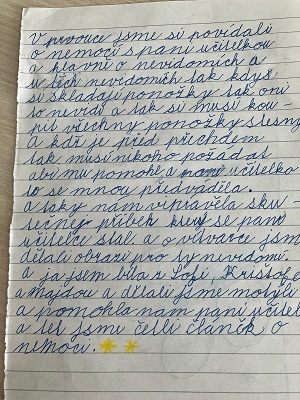 V prvouce jsme si povídali
o nemocí s paní učitelkou
a hlavní o nevidomích a
u těch nevidomích tak když
si skládají ponožky tak oni
to nevidí a tak si musí kou-
pit všechny ponožky stejný
A kdž je před přechdem
tak musí nikoho požádat
aby mu pomohl a učitelka
to se mnou předváděla.
a taky nám vyprávěla sku-
tečnej příbék kterej se paní
učitelce stal a o vítvarce jsm
dělali obrazi pro ty nevidomi.
A ja jsem bila z Sofi, Kristof
a majdou a dělali jsme motýli
a pomohla nam paní učitel
a ted jsme četli článek o
nemoci.